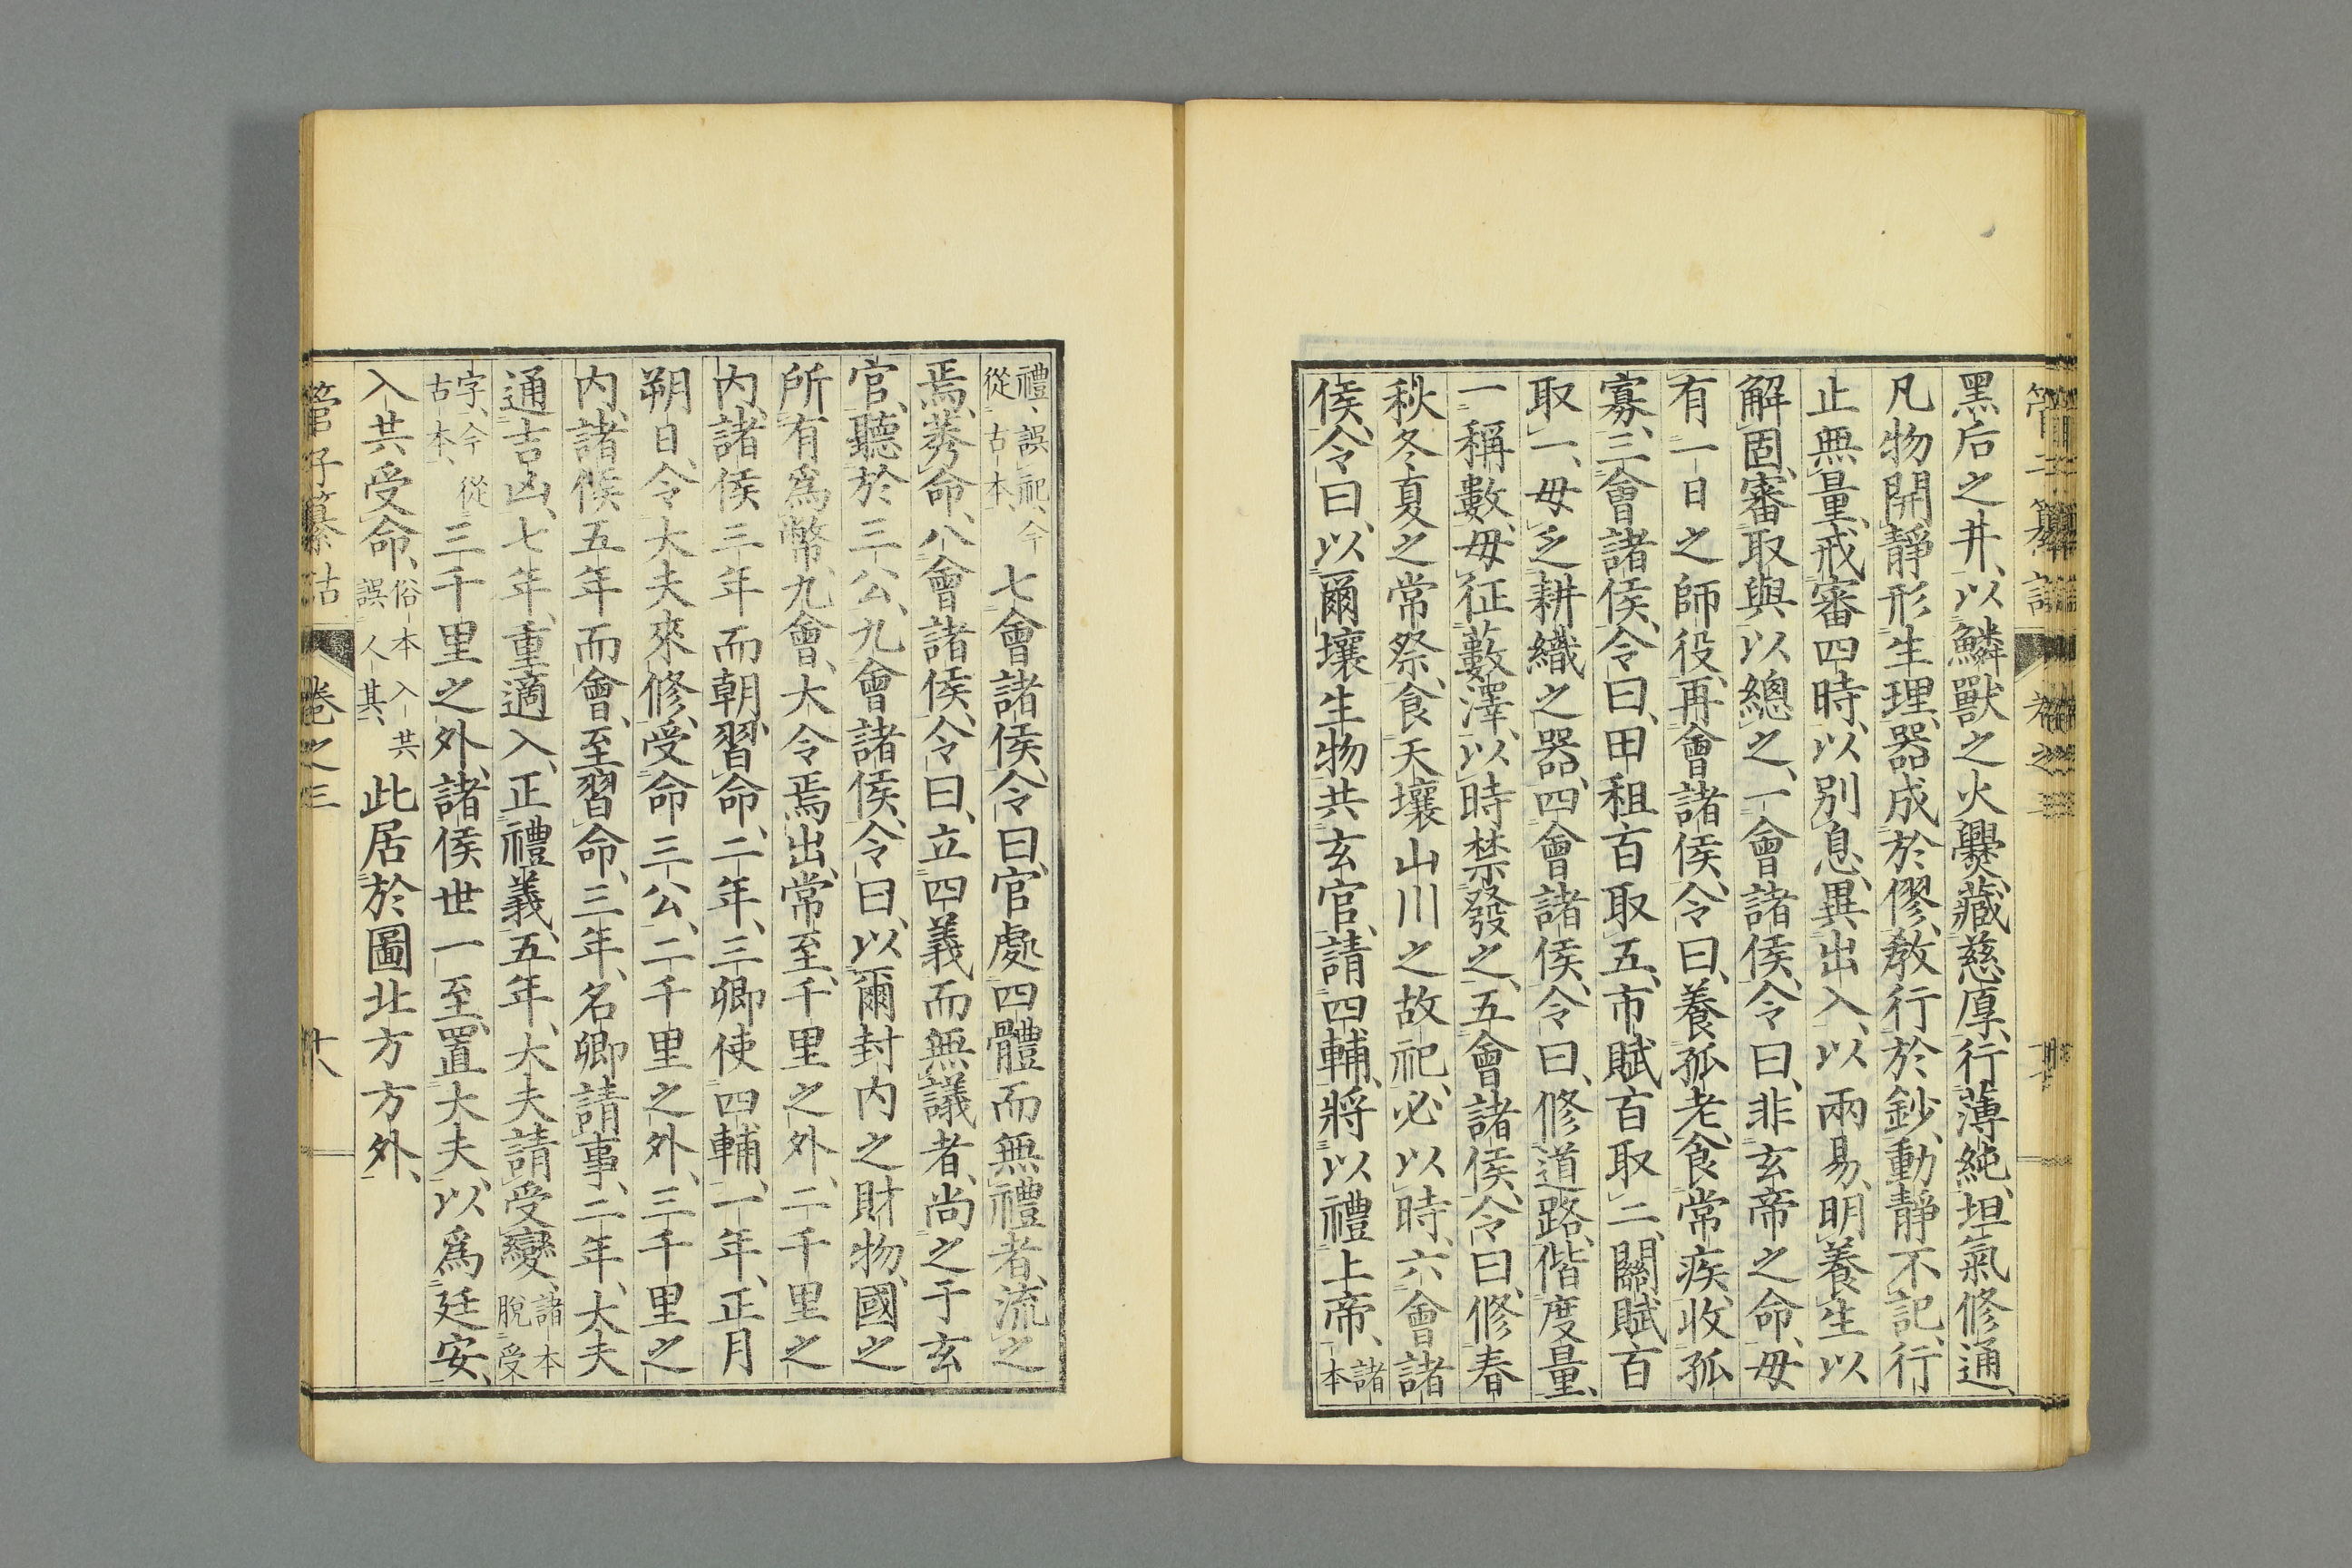 黑后之井、以鱗獸之火爨、藏慈厚、行薄純、坦氣修通、
凡物開靜形生理、器成於僇、教行於鈔、動靜不記、行
止無量、戒審四時、以別息、異出入、以兩易、明養生以
解固、審取與以總之、一會諸侯、令曰、非玄帝之命、毋
有一日之師役、再會諸侯、令曰、養孤老、食常疾、收孤
寡、三會諸侯、令曰、田租百取五、市賦百取二、關賦百
取一、毋乏耕織之器、四會諸侯、令曰、修道路、偕度量、
一稱數、毋征藪澤、以時禁發之、五會諸侯、令曰、修春
秋冬夏之常祭、食天壤山川之故祀、必以時、六會諸
侯、令曰、以爾壤生物共玄官、請四輔、將以禮上帝、諸本
禮、誤祀、今從古本、七會諸侯、令曰、官處四體而無禮者、流之
焉、莠命、八會諸侯、令曰、立四義而無議者、尚之于玄
官、聽於三公、九會諸侯、令曰、以爾封内之財物、國之
所有爲幣、九會、大令焉出、常至、千里之外、二千里之
内、諸侯三年而朝、習命、二年、三卿使四輔、一年、正月
朔日、令大夫來修、受命三公、二千里之外、三千里之
内、諸侯五年而會、至習命、三年、名卿請事、二年、大夫
通吉凶、七年、重適入、正禮義、五年、大夫請受變、諸本脫受
字、今從古本、三千里之外、諸侯世一至、置大夫、以爲廷安、
入共受命、俗本入共誤人其、此居於圖北方方外、
管子纂詁 卷之三 廿八